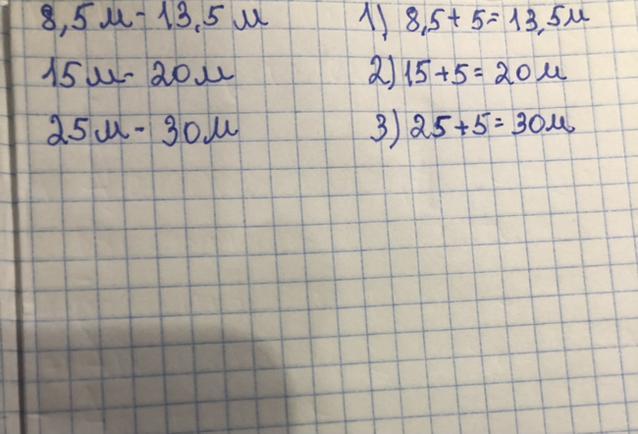 8,5м - 13,5м
15м - 20м
25м - 30м
1) 8,5 + 5 = 13,5м
2) 15 + 5 = 20м
3) 25 + 5 = 30м